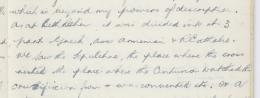 which is beyond my powers of description.
As at Bethlehem it was divided into 3
parts Greek, Armenian & R Catholic
We saw the Sepulchre, the place where the cross
rested the place where the Centurion watched the
crucifixion from a